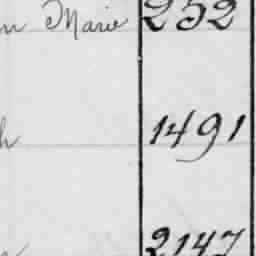 Marie 252
1491
2147